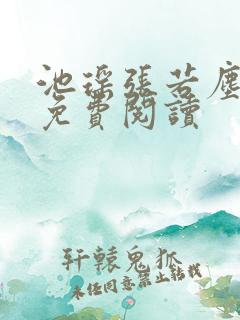 池瑶张若塵
免費閱讀
轩辕鬼狐
未经同意禁止转载